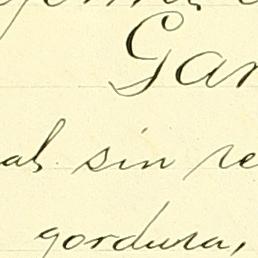 Gar
al sin re
gordura,